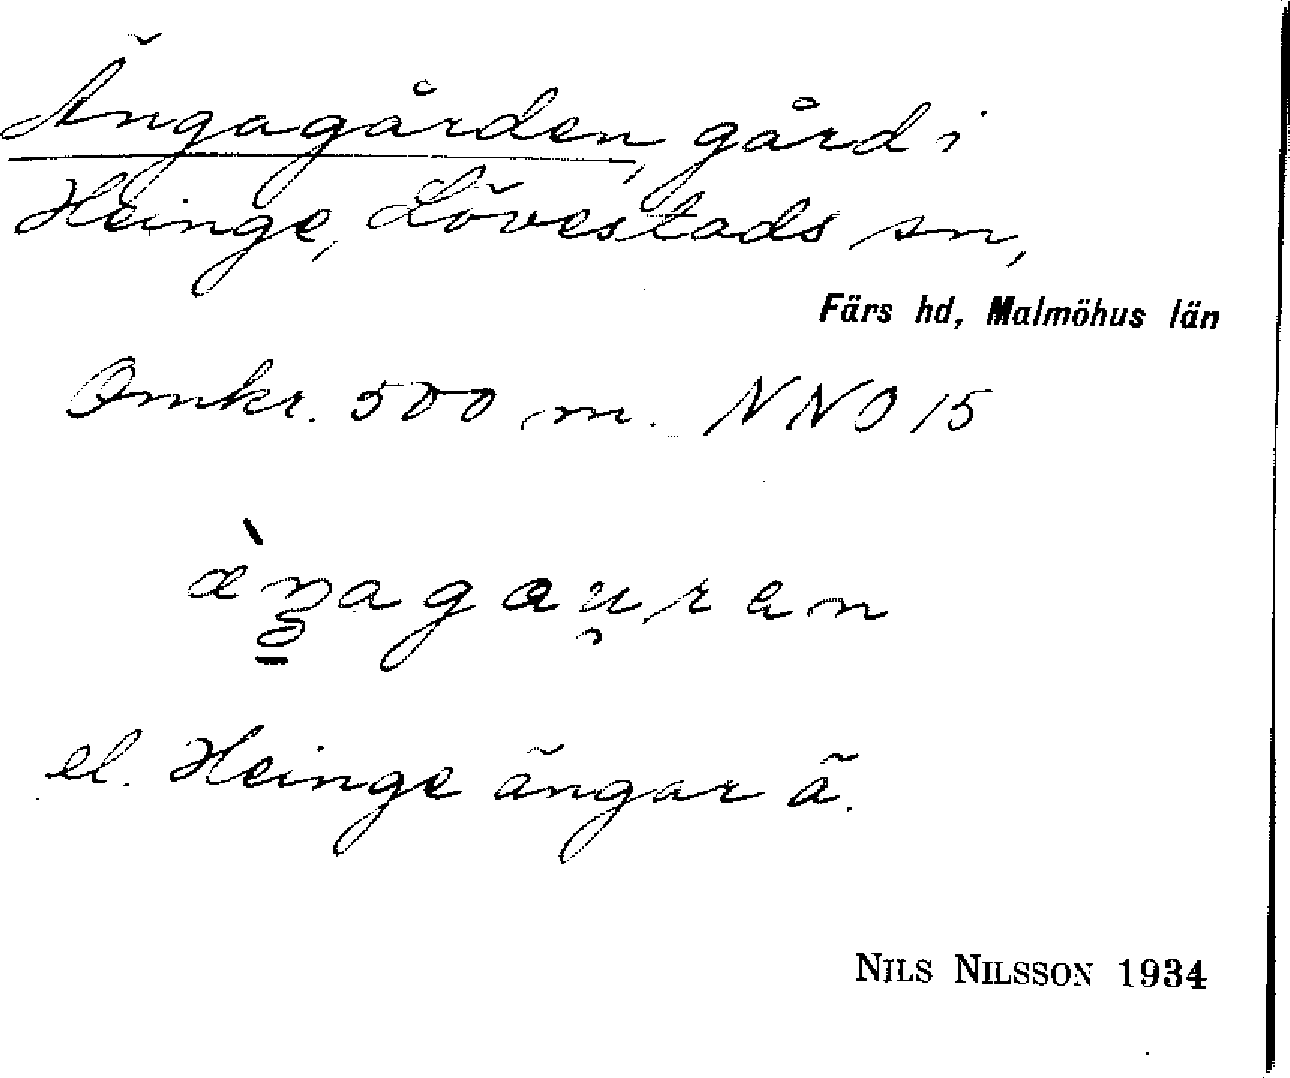 Ängagården, gård i
Heinge, Lövestads sn,
Färs hd, Malmöhus län
Omkr. 500 m. NNO 15
æ̀ŋagau̯ren
el. Heinge ängar ä.
NILS NILSSON 1934